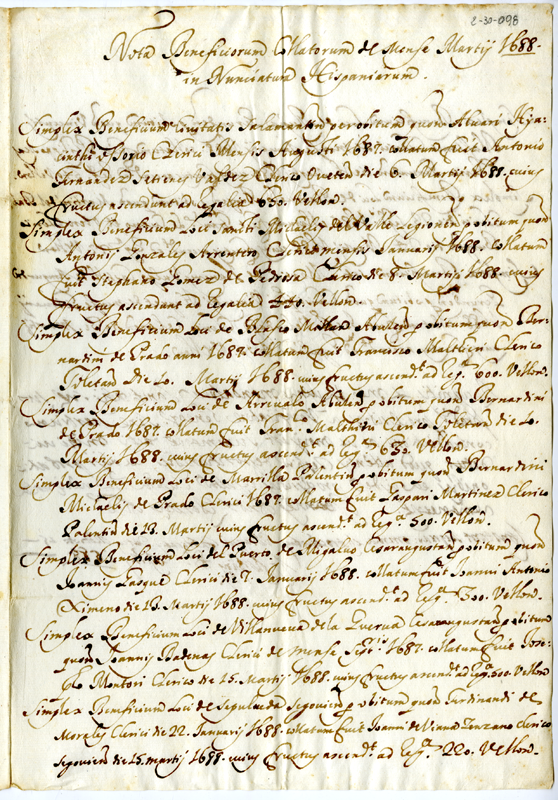 2-30-098
Nota Beneficiorum Collatorum de Mense Martij 1688.
in Nunciatura Hispaniarum.
Simplex Beneficium Civitatis Salamantin per obitum quon Alvari Hya-
cinthi Osorio Clerici Mensis Augusti 1687. collatum fuit Antonio
Fernandez Valdez Clerico Oveten die 6. Martij 1688. cuius
fructus ascendunt ad Regalia 650. Vellon.
Simplex Beneficium Loci Sancti Michaelis del Valle Legionen p obitum quon
Antonij Gonzales Clerici mensis Januarij 1688. collatum
fuit Stephano Gomez de Pedrosa die 8. Martij 1688. cuius
fructus ascendunt ad Regalia Vellon.
Simplex Beneficium Loci de Blasco Abulen p obitum quon Ber-
nardini de Prado anni 1687. collatum fuit Francisco Maltheri Clerico
Toletan die Martij 1688. cuius fructus ascend.t ad Reg.a 600. Vellon.
Simplex Beneficium Loci de Arevalo Abulen p obitum quon Bernardini
de Prado 1687. collatum fuit Fran.co Clerico Toletan die
Martij 1688. cuius fructus ascend.t ad Reg.a 630. Vellon.
Simplex Beneficium Loci de Palentin p obitum quon Bernardini
Michaelis de Prado Clerici 1687. collatum fuit Gaspari Martinez Clerico
Palentin die 13. Martij cuius fructus ascend.t ad Reg.a 500. Vellon.
Simplex Beneficium Loci del Puerto de Cesaraugustan p obitum quon
Joannis Lasque Clerici de 7. Januarij 1688. collatum fuit Joanni Antonio
Ximeno die 13. Martij 1688. cuius fructus ascend.t ad Reg.a 300. Vellon.
Simplex Beneficium Loci de Villanueva de la Guerva Cesaraugustan p obitum
quon Joannis Badenas Clerici de mense 1687. collatum fuit Jose-
pho Montori Clerico die 15. Martij 1688. cuius fructus ascend.t ad Reg.a 500. Vellon
Simplex Beneficium Loci de Sepulveda Segovien p obitum quon Ferdinandi de
Morales Clerici die 22. Januarij 1688. collatum fuit Joanni de Viana clerico
Segovien die 15. martij 1688. cuius fructus ascend.t ad Reg.a 220. Vellon.